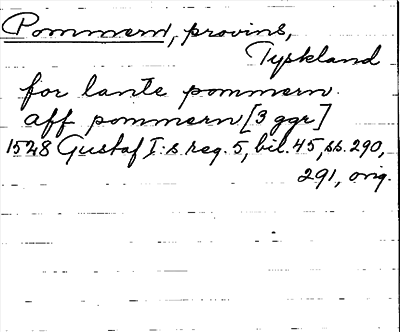 Pommern, provins,
Tyskland
for lante pommern.
aff pommern [3 ggr]
1528 Gustaf I:s reg. 5, bil. 45, ss. 290,
291, orig.